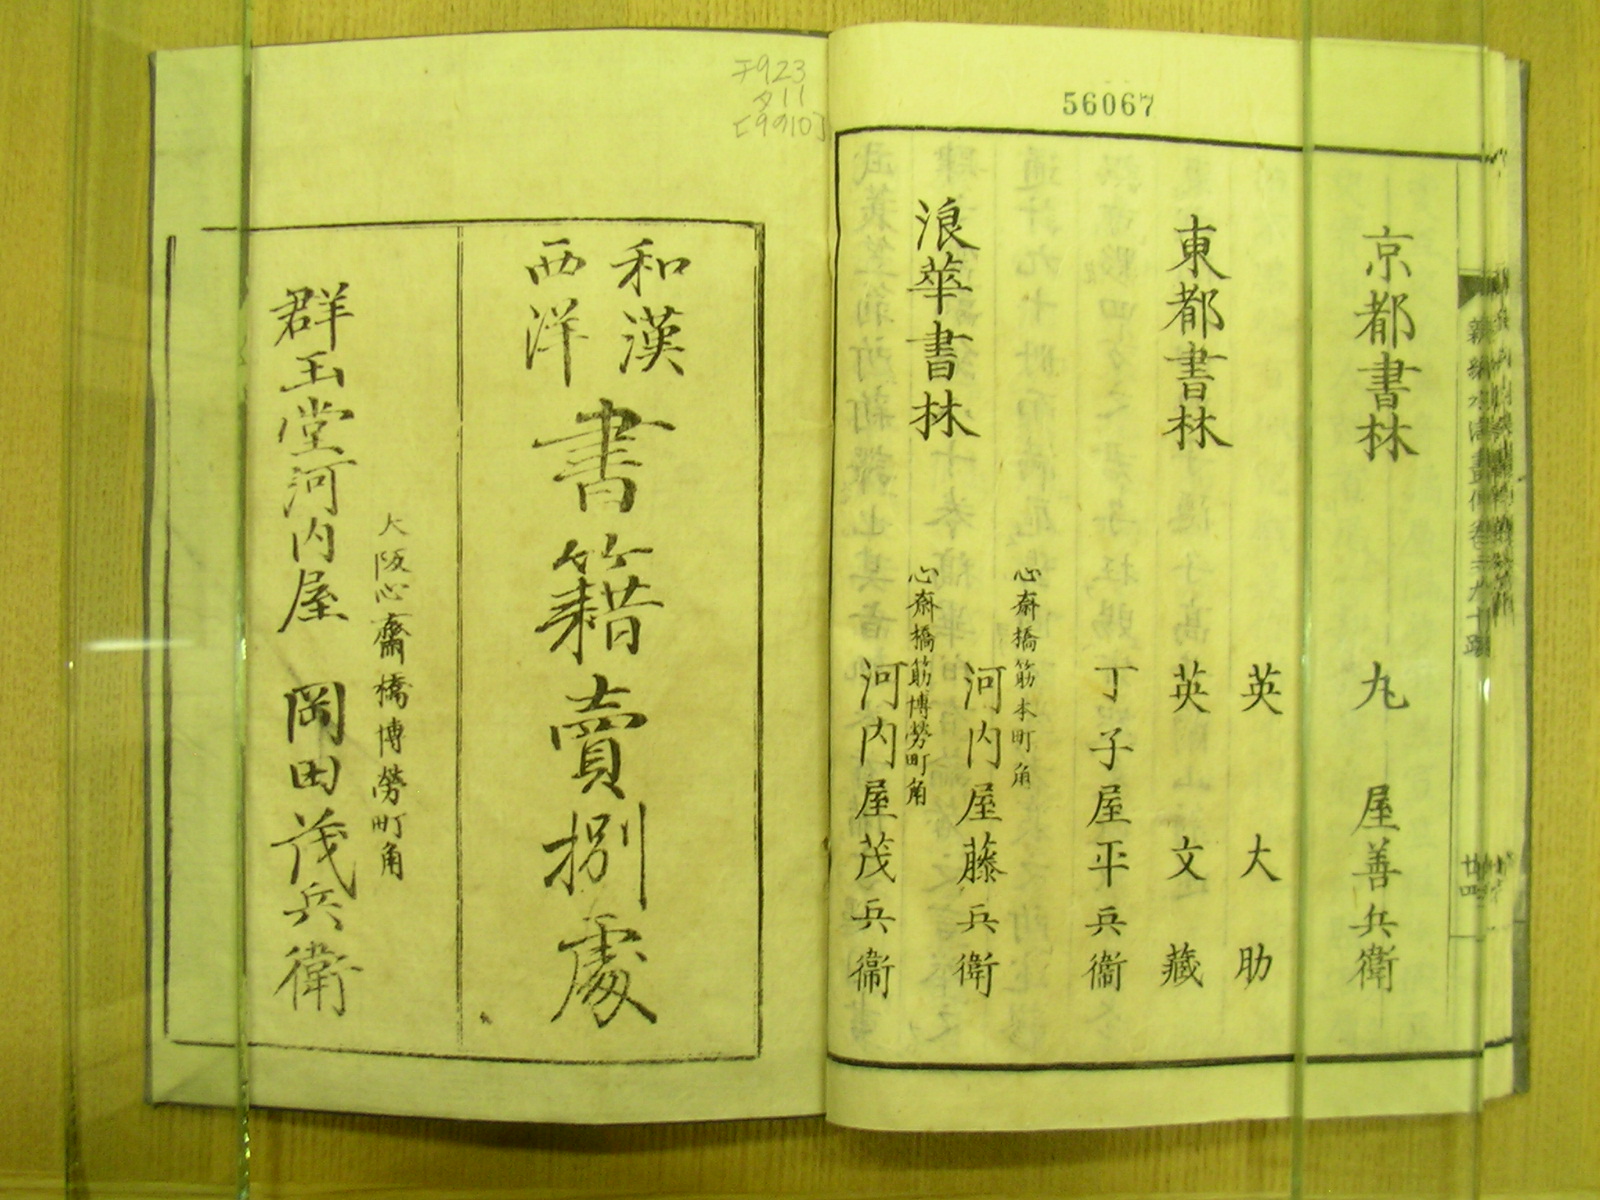 56067
京都書林
丸屋善兵衛
東都書林
英大助
英文藏
丁子屋平兵衞
浪華書林
心齋橋筋本町角
河内屋藤兵衛
心齋橋筋博勞町角
河内屋茂兵衞
923
11
[9910]
和漢
西洋
書籍賣捌處
大阪心齋橋博勞町角
群玉堂河内屋 岡田茂兵衛